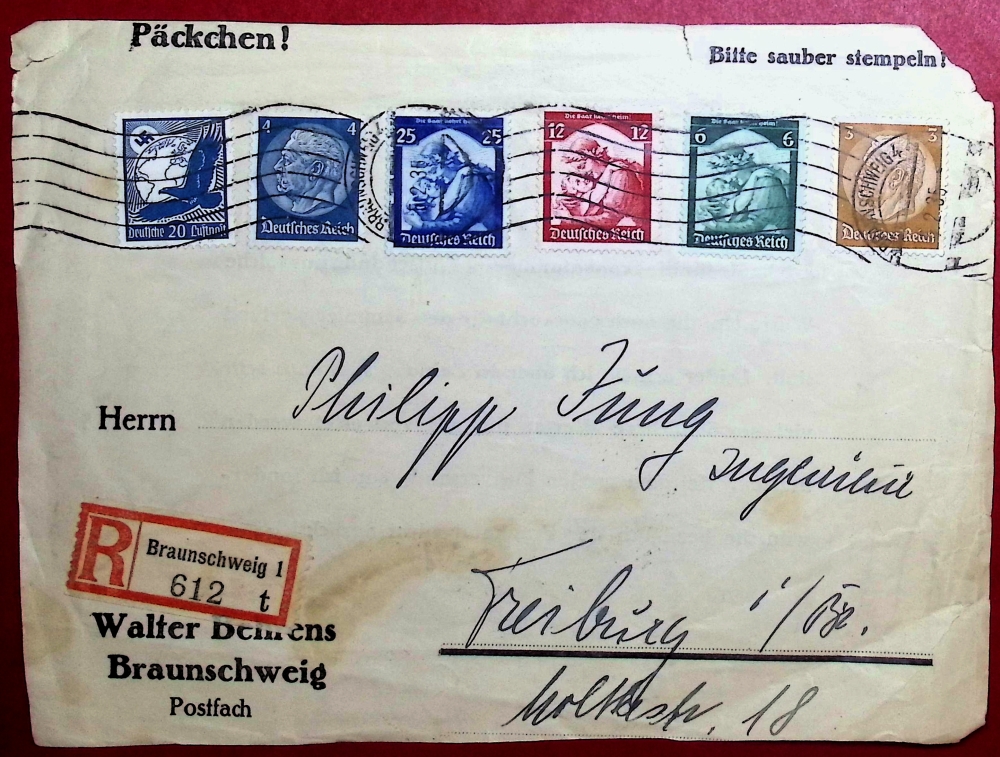 Päckchen!
Bitte sauber stempeln!
Deutsche 20 Luftpost
4 4
Deutsches Reich
Die Saar kehrt heim!
25 25
Deutsches Reich
Die Saar kehrt heim!
12 12
Deutsches Reich
Die Saar kehrt heim!
6 6
Deutsches Reich
3 3
Deutsches Reich
BRAUNSCHWEIG 4
2.35
Herrn Philipp Jung
Ingenieur
R Braunschweig 1
612 t
Freiburg i/Br.
Moltkestr. 18
Walter Behrens
Braunschweig
Postfach